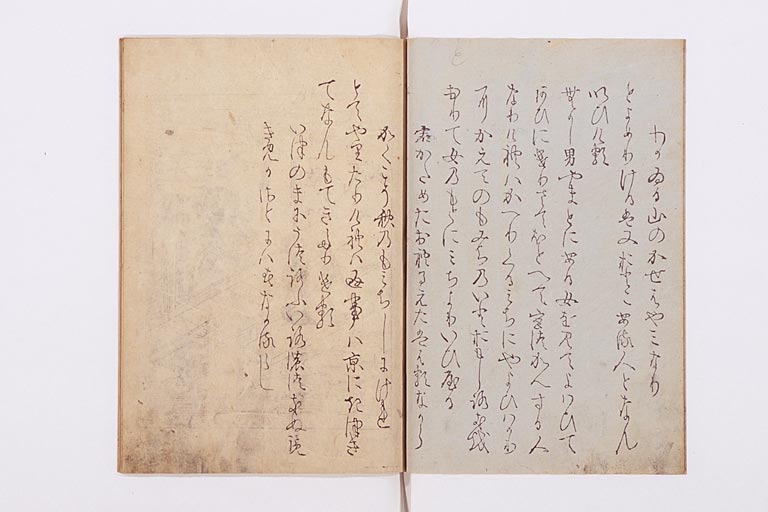 わかゐる山のかせはやみなり
とよめりけるは又おとこある人となん
いひける
むかし男やまとにある女を見てよはひて
あひにけりさてほとへて宮つかへする人
なりけれはかへりくるみちにやよひはかり
にかえてのもみちのいとおもしろきを
おりて女のもとにみちよりいひやる
君かためたおれるえたは春なから
かくこそ秋のもみちしにけれ
とてやりたりけれは返事は京にきつき
てなんもてきたりける
いつのまにうつろふいろのつきぬらん
きみかさとにははるなかるらし